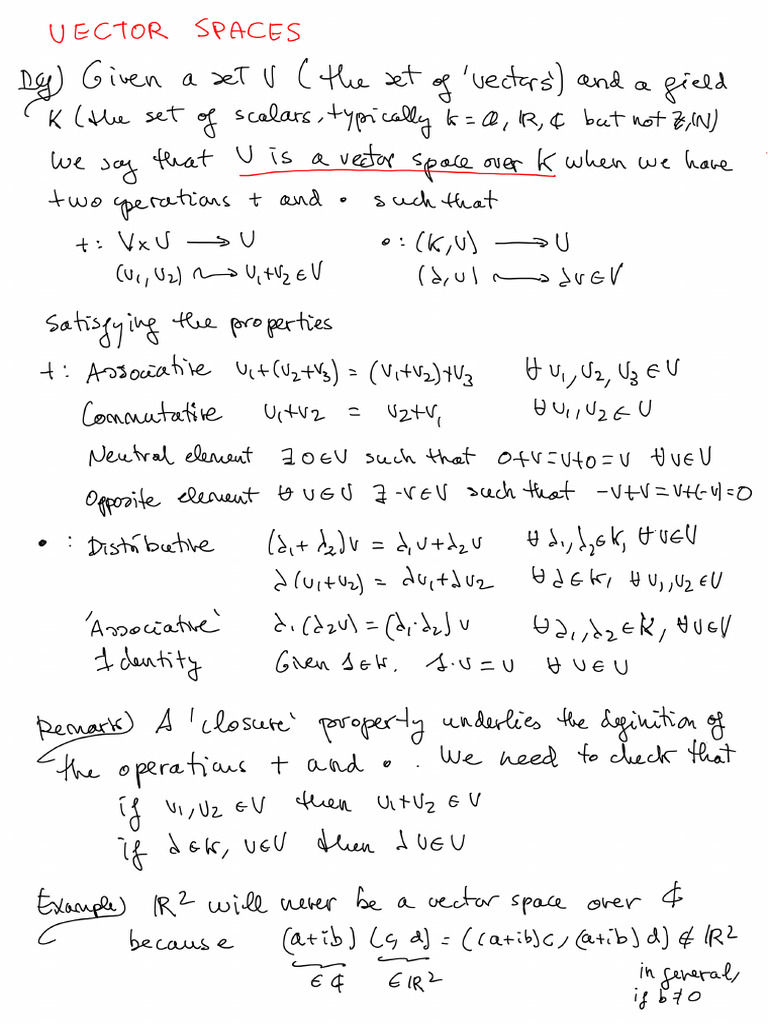 VECTOR SPACES
Def) Given a set V (the set of 'vectors') and a field
K (the set of scalars, typically K = Q, R, ₵ but not Z, N)
we say that V is a vector space over K when we have
two operations + and • such that
+ : V×V ⟶ V • : (K, V) ⟶ V
(v₁, v₂) ⟿ v₁+v₂ ∈ V (λ, v) ⟿ λv ∈ V
satisfying the properties
+ : Associative v₁+(v₂+v₃) = (v₁+v₂)+v₃ ∀ v₁, v₂, v₃ ∈ V
Commutative v₁+v₂ = v₂+v₁ ∀ v₁, v₂ ∈ V
Neutral element ∃ 0 ∈ V such that 0+v = v+0 = v ∀ v ∈ V
Opposite element ∀ v ∈ V ∃ -v ∈ V such that -v+v = v+(-v) = 0
• : Distributive (λ₁+λ₂)v = λ₁v+λ₂v ∀ λ₁, λ₂ ∈ K, ∀ v ∈ V
λ(v₁+v₂) = λv₁+λv₂ ∀ λ ∈ K, ∀ v₁, v₂ ∈ V
'Associative' λ₁(λ₂v) = (λ₁·λ₂)v ∀ λ₁, λ₂ ∈ K, ∀ v ∈ V
Identity Given 1 ∈ K. 1·v = v ∀ v ∈ V
Remark) A 'closure' property underlies the definition of
the operations + and •. We need to check that
if v₁, v₂ ∈ V then v₁+v₂ ∈ V
if λ ∈ K, v ∈ V then λv ∈ V
Example) R² will never be a vector space over ₵
because (a+ib) (c, d) = ((a+ib)c, (a+ib)d) ∉ R²
∈ ₵ ∈ R² in general,
if b ≠ 0